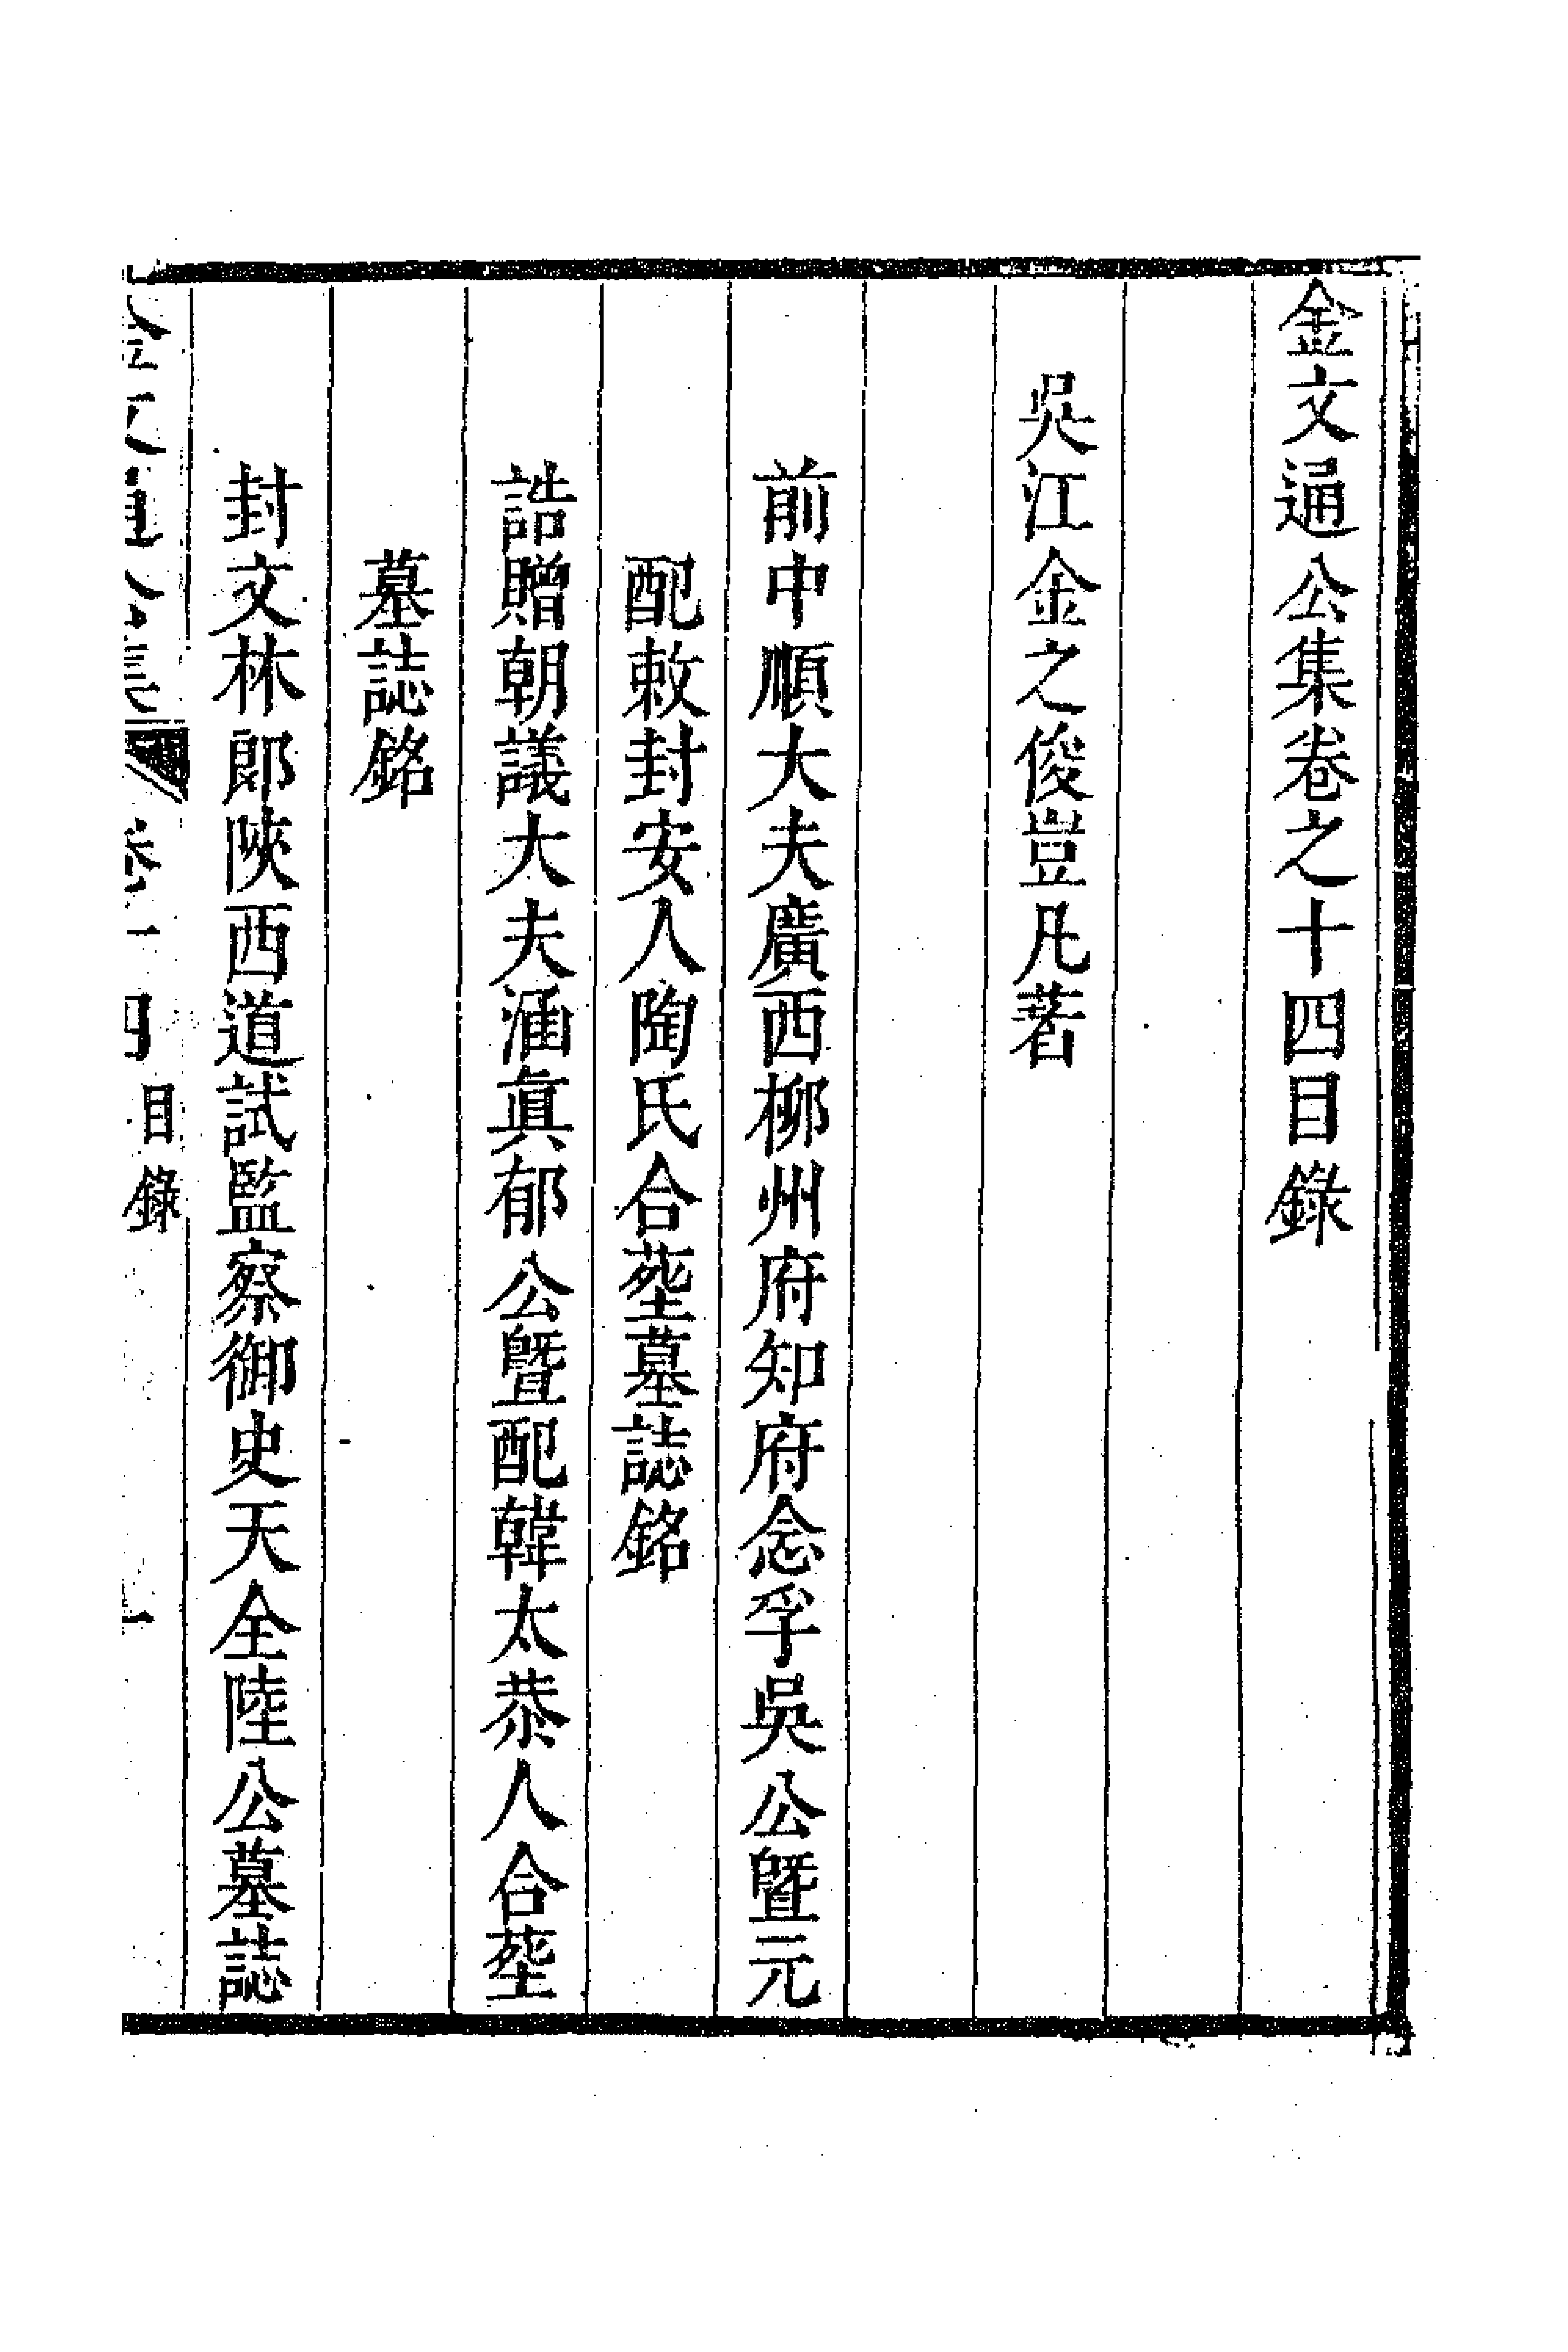 金文通公集卷之十四目錄
吳江金之俊豈凡著
前中順大夫廣西柳州府知府念孚吳公曁元
配敕封安人陶氏合塟墓誌銘
誥贈朝議大夫涵眞郁公曁配韓太恭人合塟
墓誌銘
封文林郎陝西道試監察御史天全陸公墓誌
金文通公集 卷十四 目錄 一